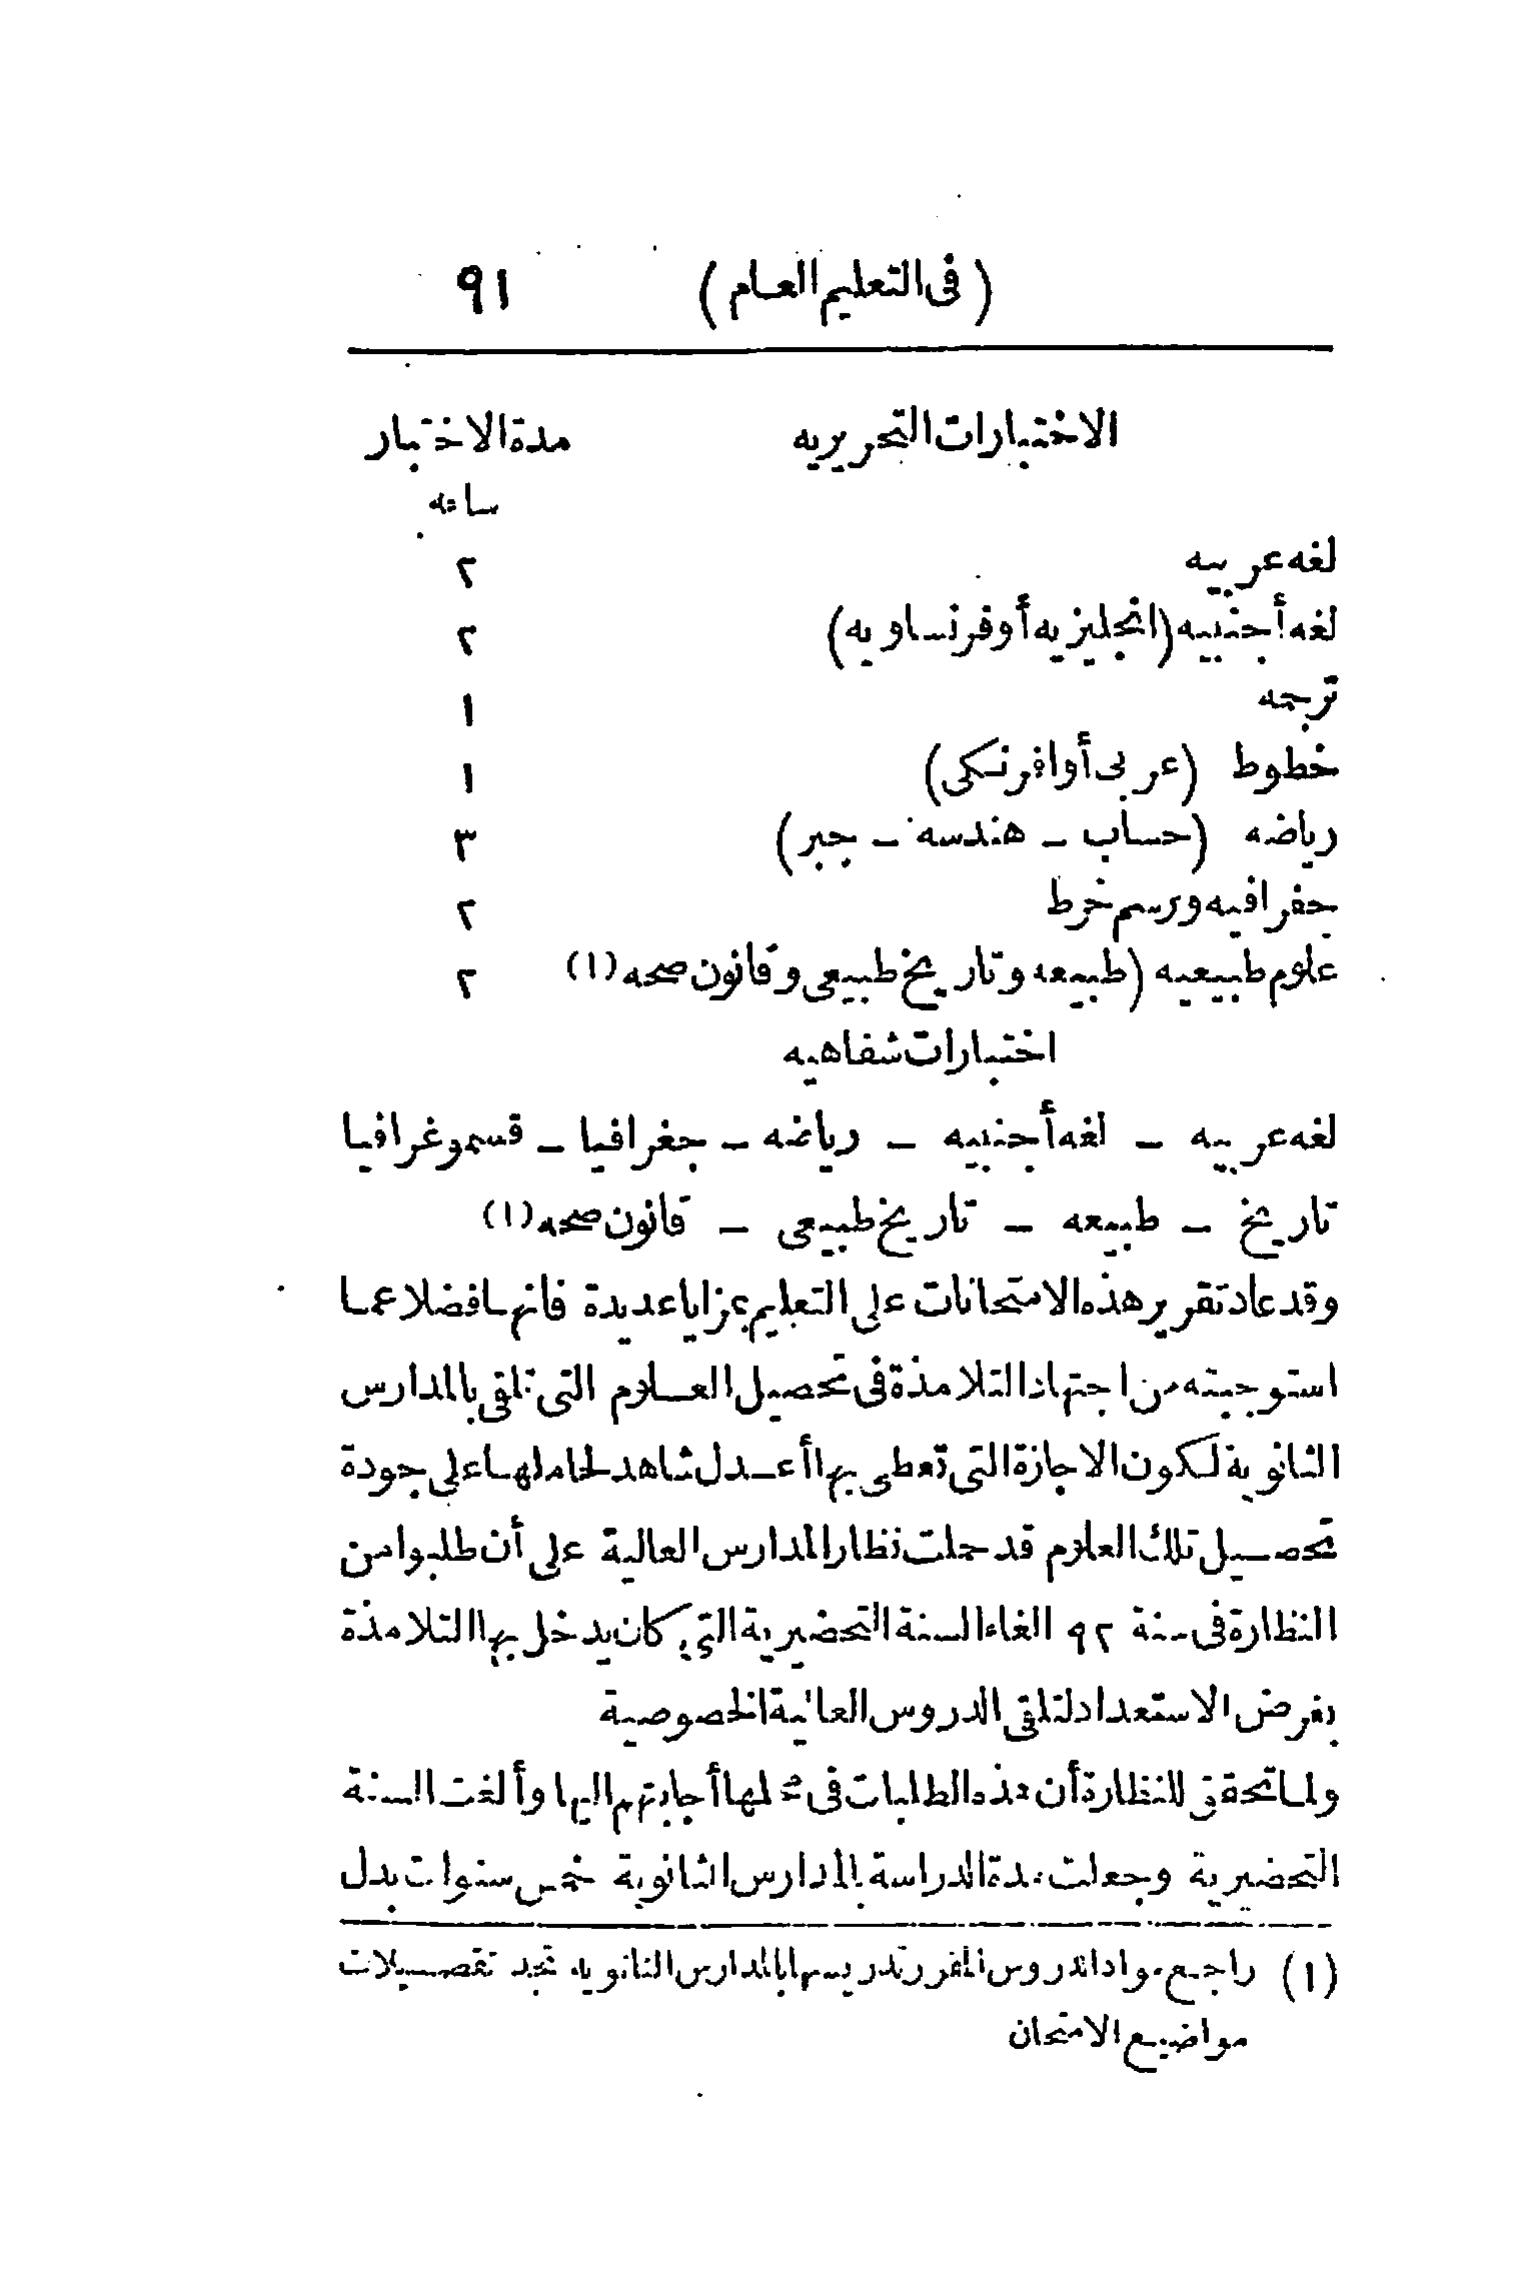 (فى التعليم العام) ٩١
الاختبارات التحريريه مدة الاختبار
ساعه
لغه عربيه ٢
لغه أجنبيه (انجليزيه أو فرنساويه) ٢
ترجمه ١
خطوط (عربى أو افرنكى) ١
رياضه (حساب ـ هندسه ـ جبر) ٣
جغرافيه ورسم خرط ٢
علوم طبيعيه (طبيعه وتاريخ طبيعى وقانون صحه (١) ٢
اختبارات شفاهيه
لغه عربيه ـ لغه أجنبيه ـ رياضه ـ جغرافيا ـ قسموغرافيا
تاريخ ـ طبيعه ـ تاريخ طبيعى ـ قانون صحه (١)
وقد عاد تقرير هذه الامتحانات على التعليم بمزايا عديدة فانها فضلا عما
استوجبته من اجتهاد التلامذة فى تحصيل العلوم التى تلقى بالمدارس
الثانوية لكون الاجازة التى تعطى بها أعدل شاهد لحاملها على جودة
تحصيل تلك العلوم قد حملت نظار المدارس العالية على أن طلبوا من
النظارة فى سنة ٩٢ الغاء السنة التحضيرية التى كان يدخل بها التلامذة
بغرض الاستعداد لتلقى الدروس العالية الخصوصية
ولما تحقق للنظارة أن هذه الطلبات فى محلها أجابتهم اليها وألغت السنة
التحضيرية وجعلت مدة الدراسة بالمدارس الثانوية خمس سنوات بدل
(١) راجع مواد الدروس المقرر تدريسها بالمدارس الثانويه تجد تفصيلات
مواضيع الامتحان